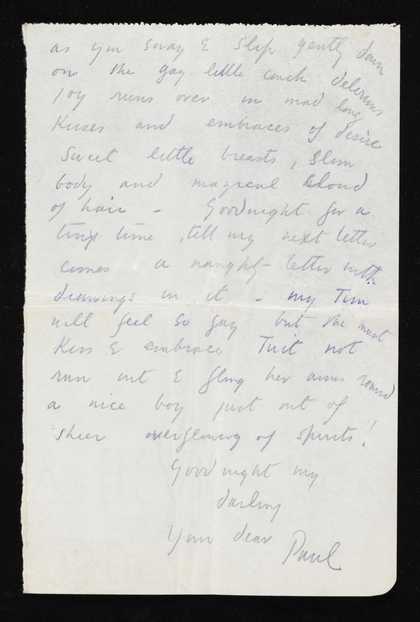 as you sway & slip gently down
on the gay little couch delirious
joy runs over in mad long
kisses and embraces of desire
Sweet little breasts, slim
body and magical cloud
of hair – Goodnight for a
tiny time, till my next letter
comes a naughty letter with
drawings in it – my Tim
will feel so gay but she must
Kiss & embrace but not
run out & fling her arms round
a nice boy just out of
sheer overflowing of spirits!
Goodnight my
darling
Your dear Paul